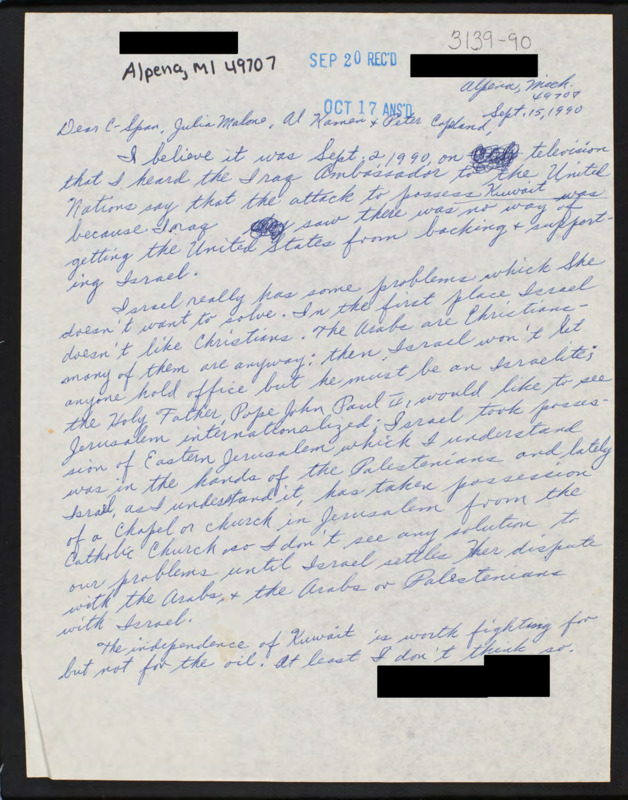 3139-90
Alpena, MI 49707
SEP 20 REC'D
Alpena, Mich.
49707
OCT 17 ANS'D
Sept. 15, 1990
Dear C-Span, Julia Malone, Al Kamen & Peter Copland,
I believe it was Sept. 2, 1990, on television
that I heard the Iraq Ambassador to the United
Nations say that the attack to possess Kuwait was
because Iraq saw there was no way of
getting the United States from backing & support-
ing Israel.
Israel really has some problems which She
doesn't want to solve. In the first place Israel
doesn't like Christians. The Arabs are Christians-
many of them are anyway: then Israel won't let
anyone hold office but he must be an Israelite;
the Holy Father, Pope John Paul II, would like to see
Jerusalem internationalized; Israel took posses-
sion of Eastern Jerusalem which I understand
was in the hands of the Palestenians and lately
Israel, as I understand it, has taken possession
of a Chapel or church in Jerusalem from the
Catholic Church so I don't see any solution to
our problems until Israel settles Her dispute
with the Arabs, & the Arabs or Palestenians
with Israel.
The independence of Kuwait is worth fighting for
but not for the oil. At least I don't think so.